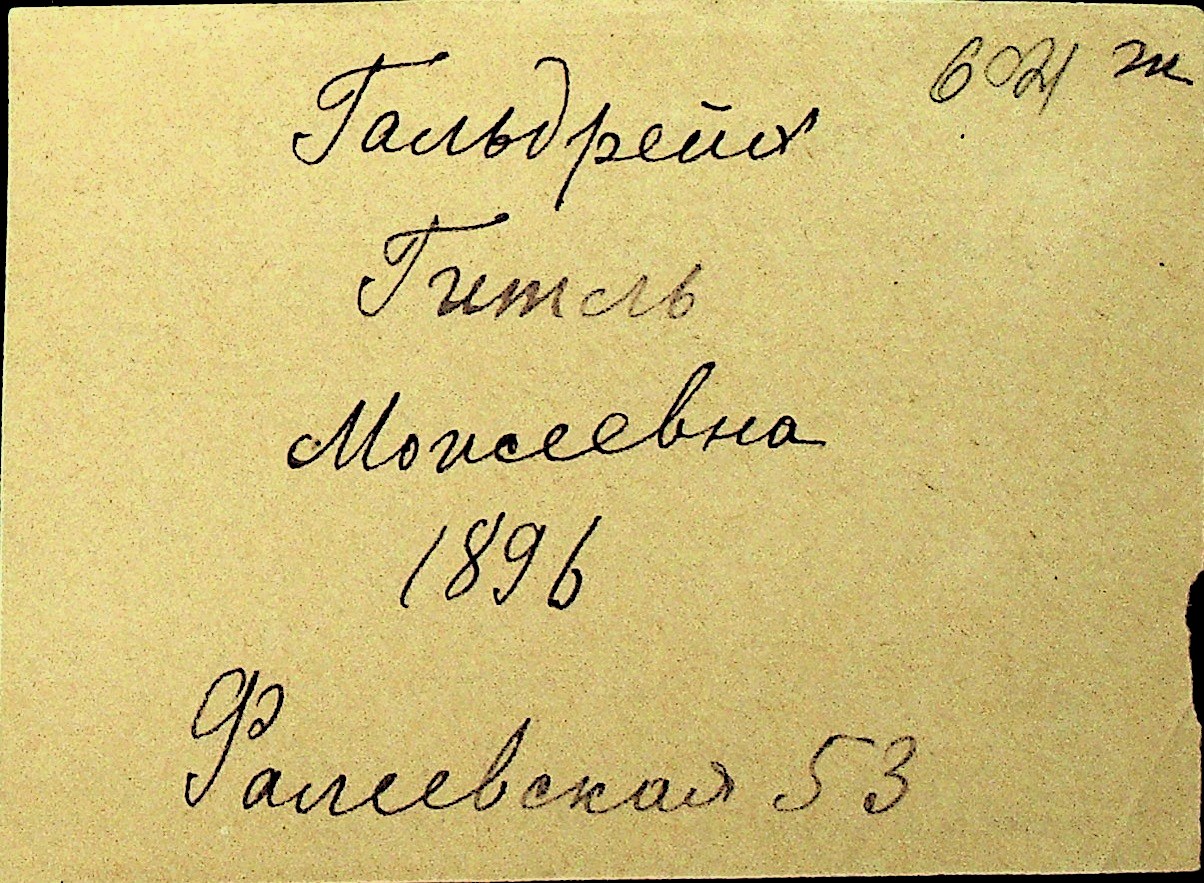 602 ж
Гальдрейх
Гитль
Моисеевна
1896
Фалеевская 53